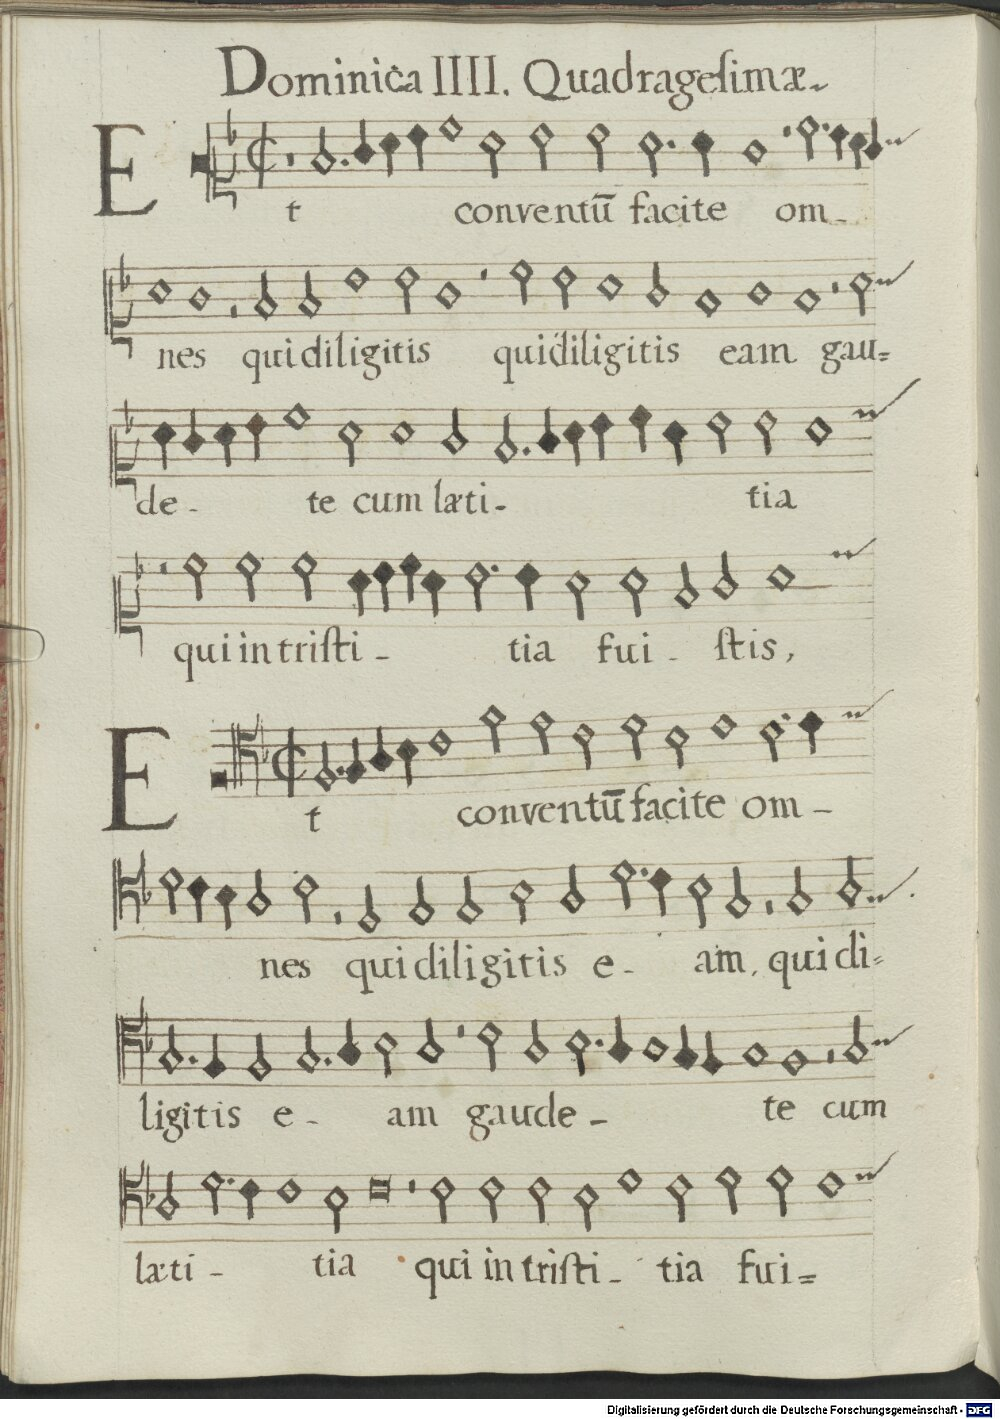 Dominica IIII. Quadragesimæ.
Et conventū facite om-
nes qui diligitis qui diligitis eam gau=
de- te cum læti- tia
qui in tristi- tia fui- stis,
Et conventū facite om-
nes qui diligitis e- am, qui di=
ligitis e- am gaude- te cum
læti- tia qui in tristi- tia fui=
Digitalisierung gefördert durch die Deutsche Forschungsgemeinschaft - DFG